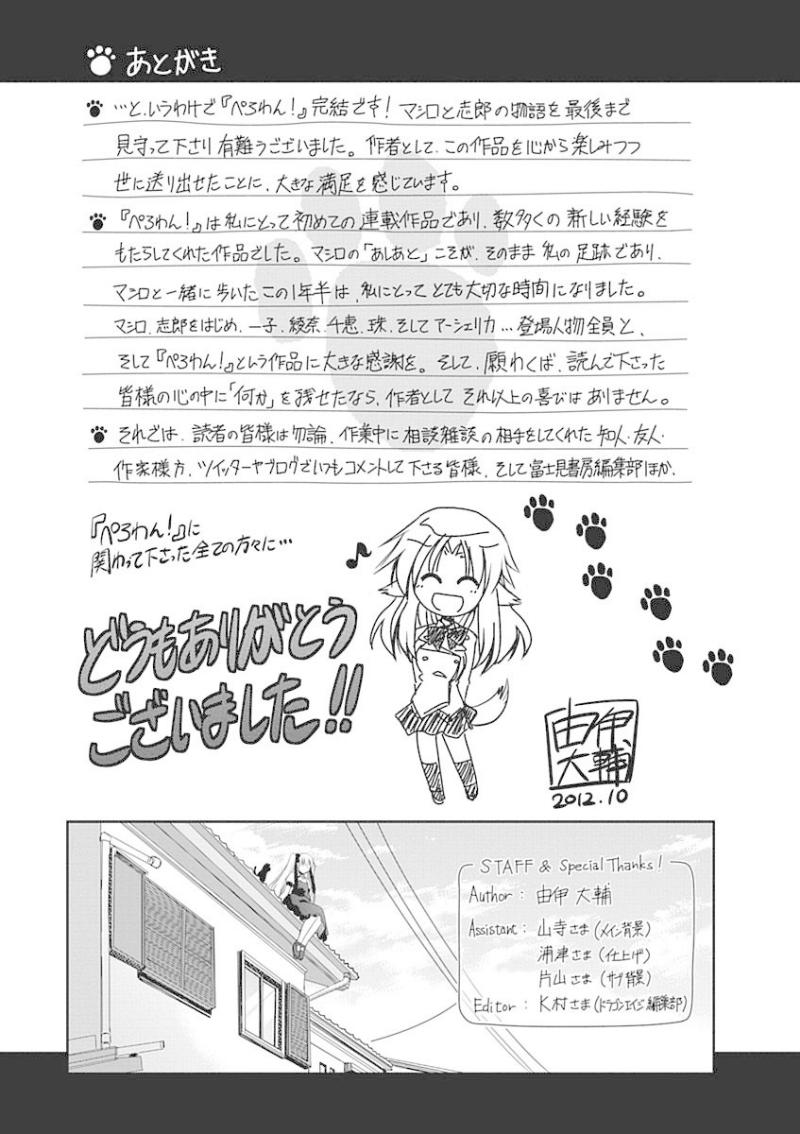 あとがき
…と、いうわけで『ぺろわん!』完結です! マシロと志郎の物語を最後まで
見守って下さり有難うございました。作者として、この作品を心から楽しみつつ
世に送り出せたことに、大きな満足を感じています。
『ぺろわん!』は私にとって初めての連載作品であり、数多くの新しい経験を
もたらしてくれた作品でした。マシロの「あしあと」こそが、そのまま私の足跡であり、
マシロと一緒に歩いたこの1年半は、私にとってとても大切な時間になりました。
マシロ、志郎をはじめ、一子、綾奈、千恵、珠、そしてアーシェリカ…登場人物全員と、
そして『ぺろわん!』という作品に大きな感謝を。そして、願わくば、読んで下さった
皆様の心の中に「何か」を残せたなら、作者としてそれ以上の喜びはありません。
それでは、読者の皆様は勿論、作業中に相談雑談の相手をしてくれた知人・友人・
作家様方、ツイッターやブログでいつもコメントして下さる皆様、そして富士見書房編集部ほか、
『ぺろわん!』に
関わって下さった全ての方々に…
どうもありがとう
ございました!!
由伊
大輔
2012.10
STAFF & Special Thanks!
Author: 由伊 大輔
Assistant: 山寺さま(メイン背景)
浦津さま(仕上げ)
片山さま(サブ背景)
Editor: K村さま(ドラゴンエイジ編集部)